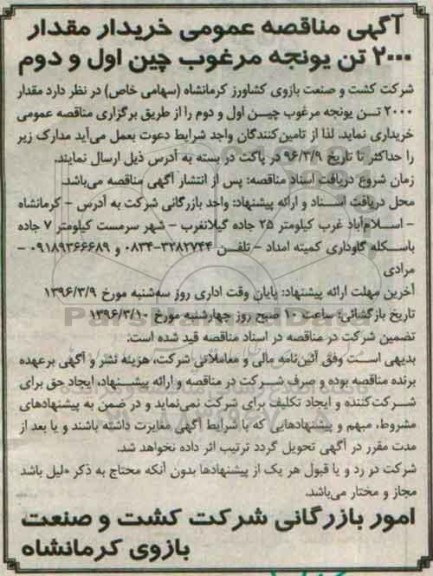 آگهی مناقصه عمومی خریدار مقدار
۲۰۰۰ تن یونجه مرغوب چین اول و دوم
شرکت کشت و صنعت بازوی کشاورز کرمانشاه (سهامی خاص) در نظر دارد مقدار
۲۰۰۰ تن یونجه مرغوب چین اول و دوم را از طریق برگزاری مناقصه عمومی
خریداری نماید. لذا از تامین‌کنندگان واجد شرایط دعوت بعمل می‌آید مدارک زیر
را حداکثر تا تاریخ ۹۶/۳/۹ در پاکت در بسته به آدرس ذیل ارسال نمایند.
زمان شروع دریافت اسناد مناقصه: پس از انتشار آگهی مناقصه می‌باشد.
محل دریافت اسناد و ارائه پیشنهاد: واحد بازرگانی شرکت به آدرس - کرمانشاه
- اسلام‌آباد غرب کیلومتر ۲۵ جاده گیلانغرب - شهر سرمست کیلومتر ۷ جاده
باسکله گاوداری کمیته امداد - تلفن ۳۳۸۲۷۴۴-۰۸۳۴ و ۰۹۱۸۹۳۶۶۶۸۹ -
مرادی
آخرین مهلت ارائه پیشنهاد: پایان وقت اداری روز سه‌شنبه مورخ ۱۳۹۶/۳/۹
تاریخ بازگشائی: ساعت ۱۰ صبح روز چهارشنبه مورخ ۱۳۹۶/۳/۱۰
تضمین شرکت در مناقصه در اسناد مناقصه قید شده است.
بدیهی است وفق آئین‌نامه مالی و معاملاتی شرکت، هزینه نشر و آگهی برعهده
برنده مناقصه بوده و صرف شرکت در مناقصه و ارائه پیشنهاد، ایجاد حق برای
شرکت‌کننده و ایجاد تکلیف برای شرکت نمی‌نماید و در ضمن به پیشنهادهای
مشروط، مبهم و پیشنهادهایی که با شرایط آگهی مغایرت داشته باشند و یا بعد از
مدت مقرر در آگهی تحویل گردد ترتیب اثر داده نخواهد شد.
شرکت در رد و یا قبول هر یک از پیشنهادها بدون آنکه محتاج به ذکر دلیل باشد
مجاز و مختار می‌باشد.
امور بازرگانی شرکت کشت و صنعت
بازوی کرمانشاه